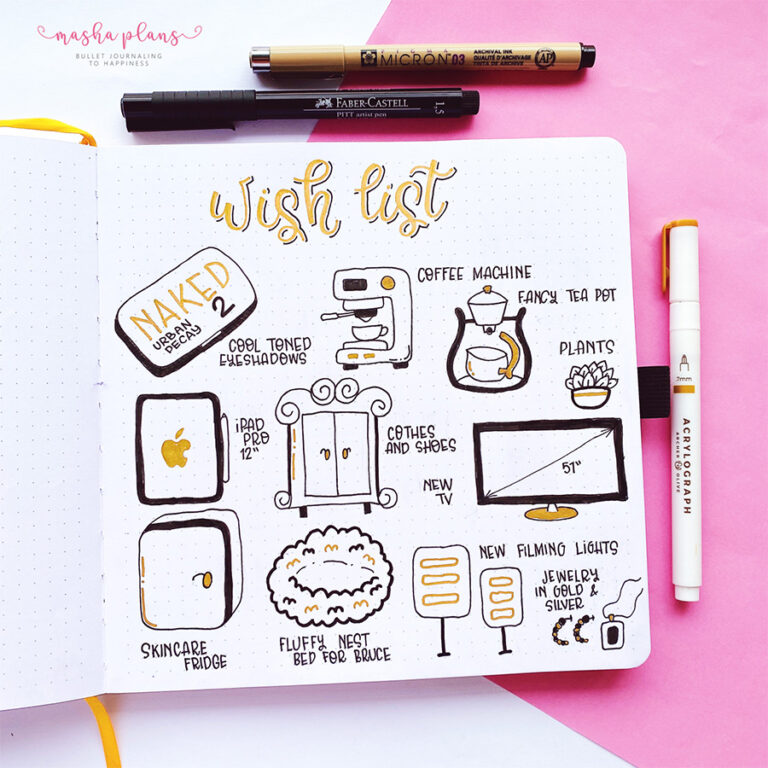 masha plans
BULLET JOURNALING
TO HAPPINESS
PIGMA
MICRON 03
ARCHIVAL INK
QUALITÉ D'ARCHIVAGE
TINTA DE ARCHIVO
AP
FABER-CASTELL
PITT artist pen
1,5
wish list
NAKED
2
URBAN
DECAY
COOL TONED
EYESHADOWS
COFFEE MACHINE
FANCY TEA POT
PLANTS
iPAD
PRO
12"
COTHES
AND SHOES
NEW
TV
51"
SKINCARE
FRIDGE
FLUFFY NEST
BED FOR BRUCE
NEW FILMING LIGHTS
JEWELRY
IN GOLD &
SILVER
.7mm
ACRYLOGRAPH
ARCHER & OLIVE